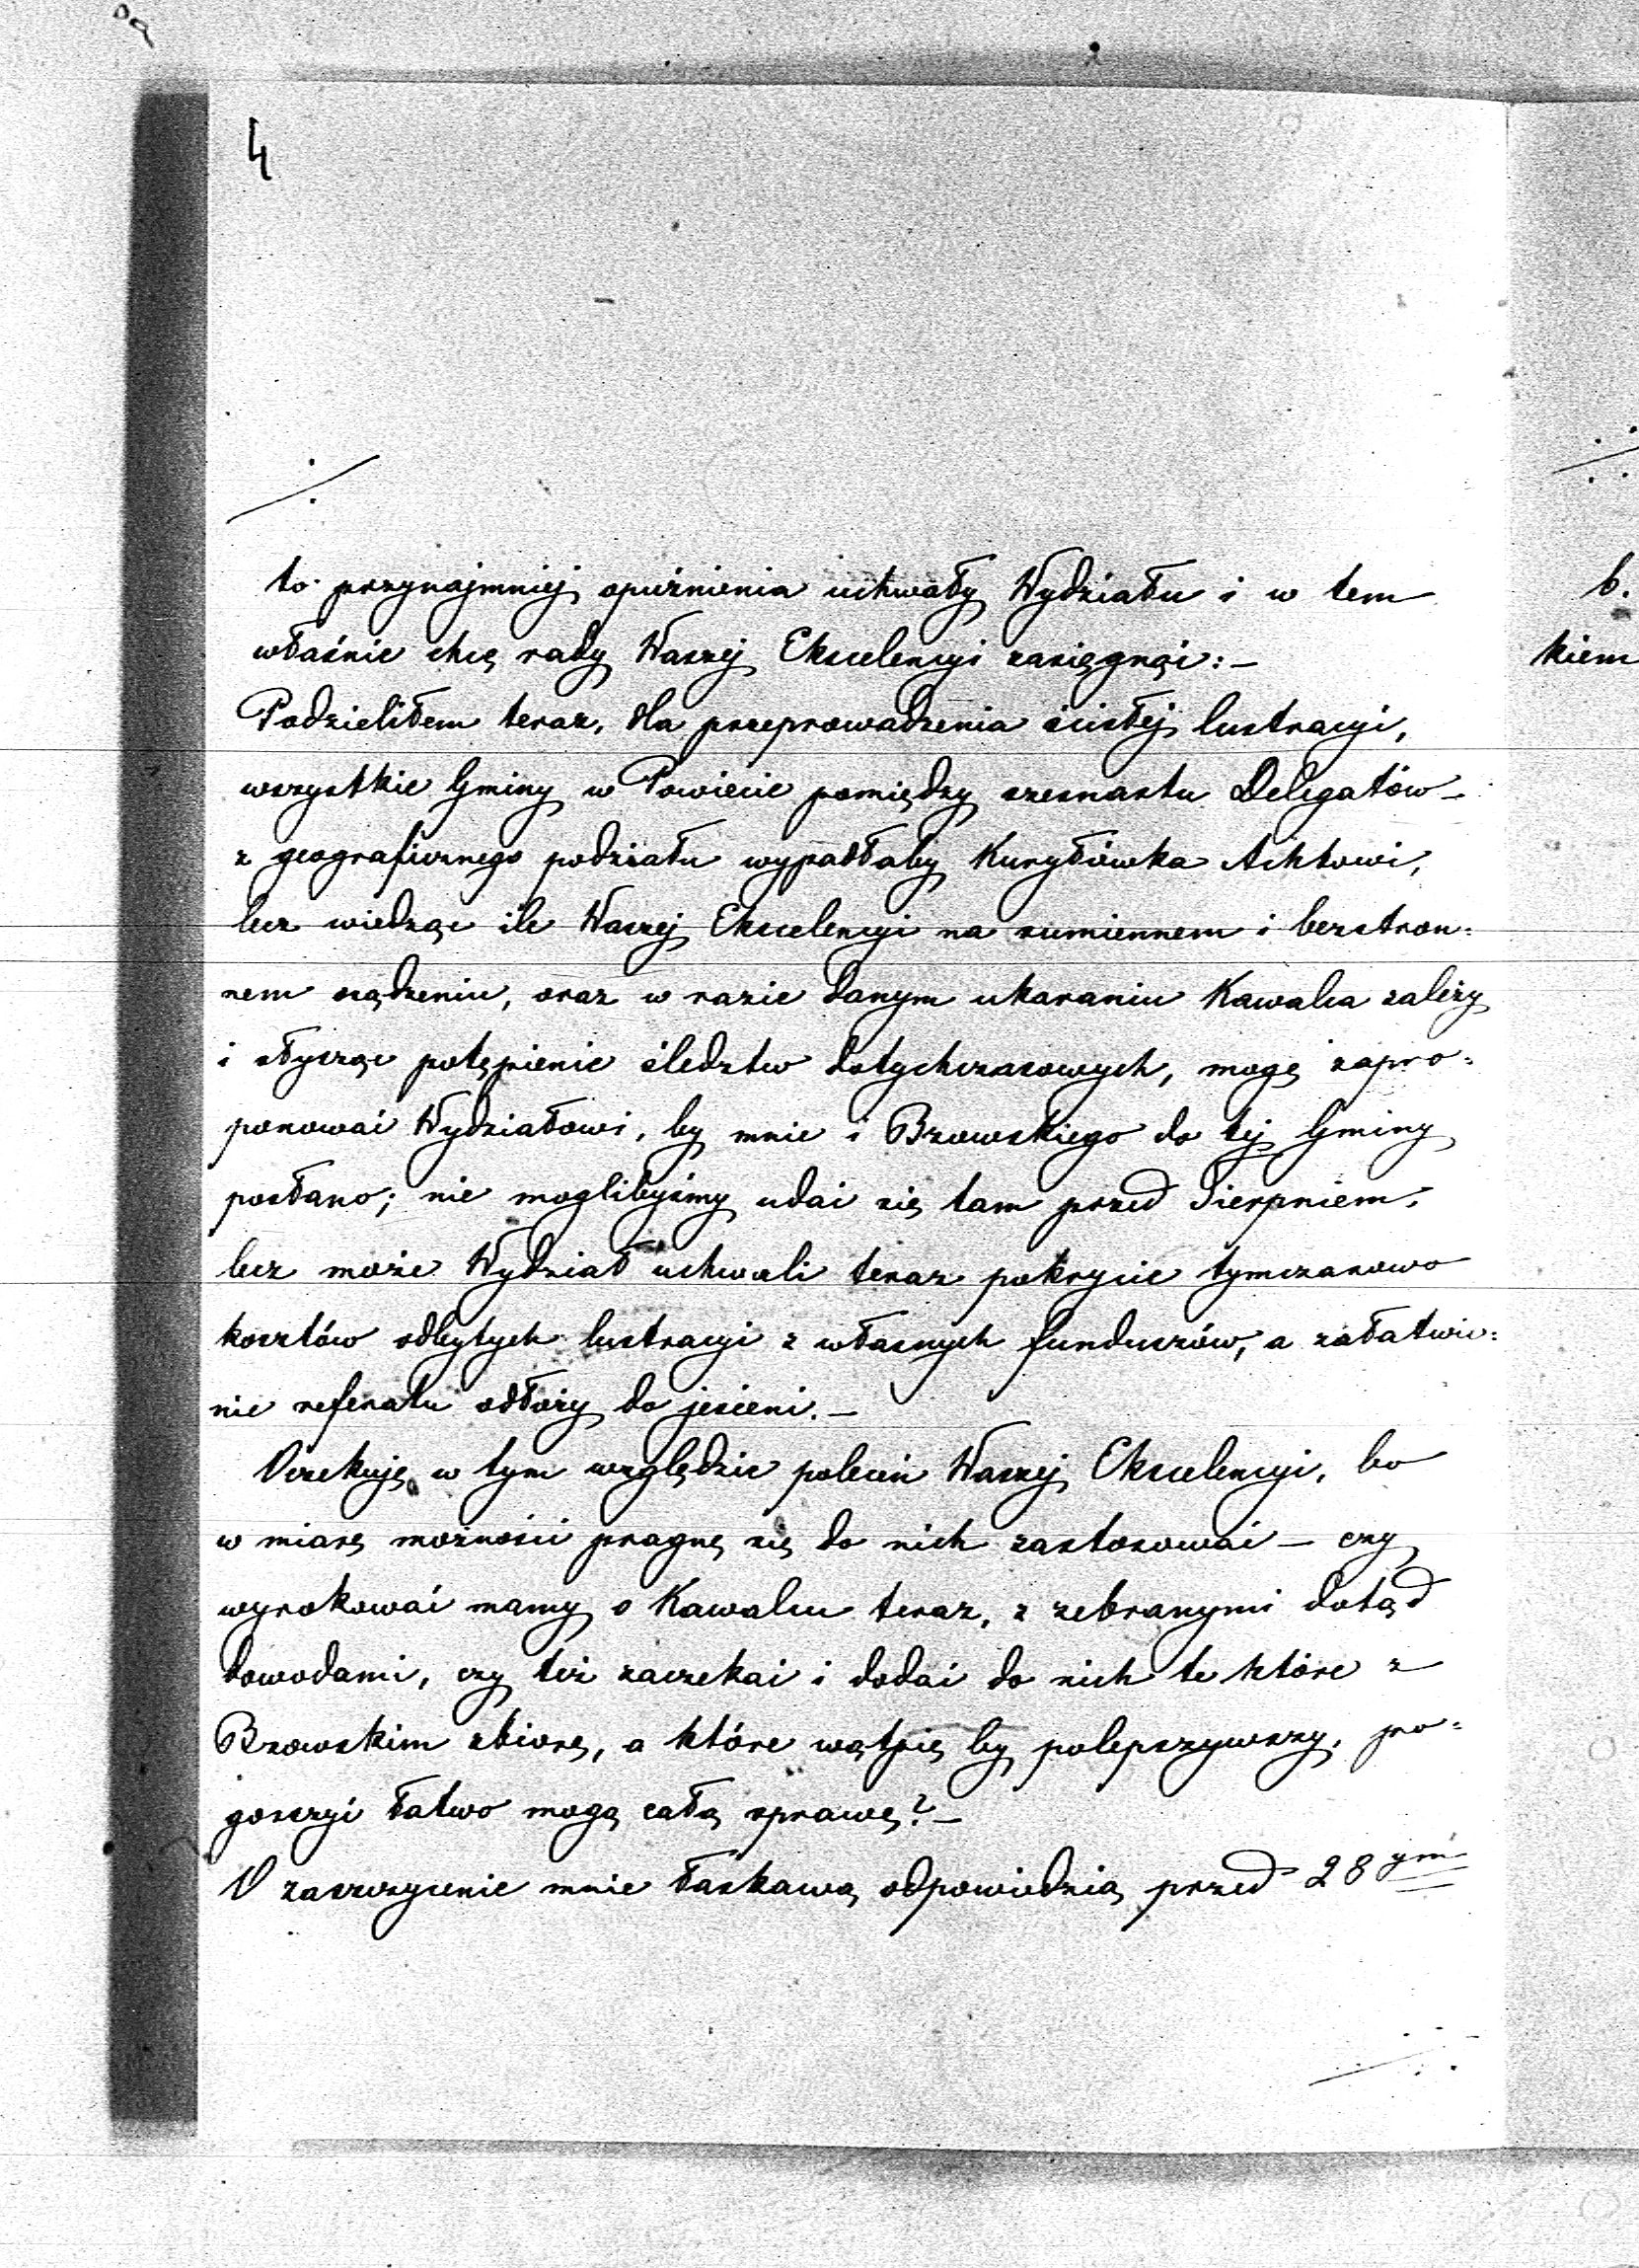 4
./.
to przynajmniej opóźnienia uchwały Wydziału i w tem
właśnie chcę rady Waszej Ekscelencyi zasięgnąć:—
Podzieliłem teraz, dla przeprowadzenia ścisłej lustracyi,
wszystkie Gminy w Powiecie pomiędzy szesnastu Delegatów—
z geograficznego podziału wypadłaby Kuryłówka Achtowi,
lecz wiedząc ile Waszej Ekscelencyi na sumiennem i bezstron=
nem osądzeniu, oraz w razie danym ukaraniu Kawalca zależy
i słysząc potępienie śledztw dotychczasowych, mogę zapro=
ponować Wydziałowi, by mnie i Brzowskiego do tej Gminy
posłano; nie moglibyśmy udać się tam przed Sierpniem,
lecz może Wydział uchwali teraz pokrycie tymczasowo
kosztów odbytych lustracyi z własnych funduszów, a załatwie=
nie referatu odłoży do jesieni.—
Oczekuję w tym względzie poleceń Waszej Ekscelencyi, bo
w miarę możności pragnę się do nich zastosować — czy
wyrokować mamy o Kawalcu teraz, z zebranymi dotąd
dowodami, czy też zaczekać i dodać do nich te które z
Brzowskim zbiorę, a które wątpię by polepszywszy, po=
gorszyć łatwo mogą całą sprawę?—
O zaszczycenie mnie łaskawą odpowiedzią przed 28ym
./.
b.
kiem